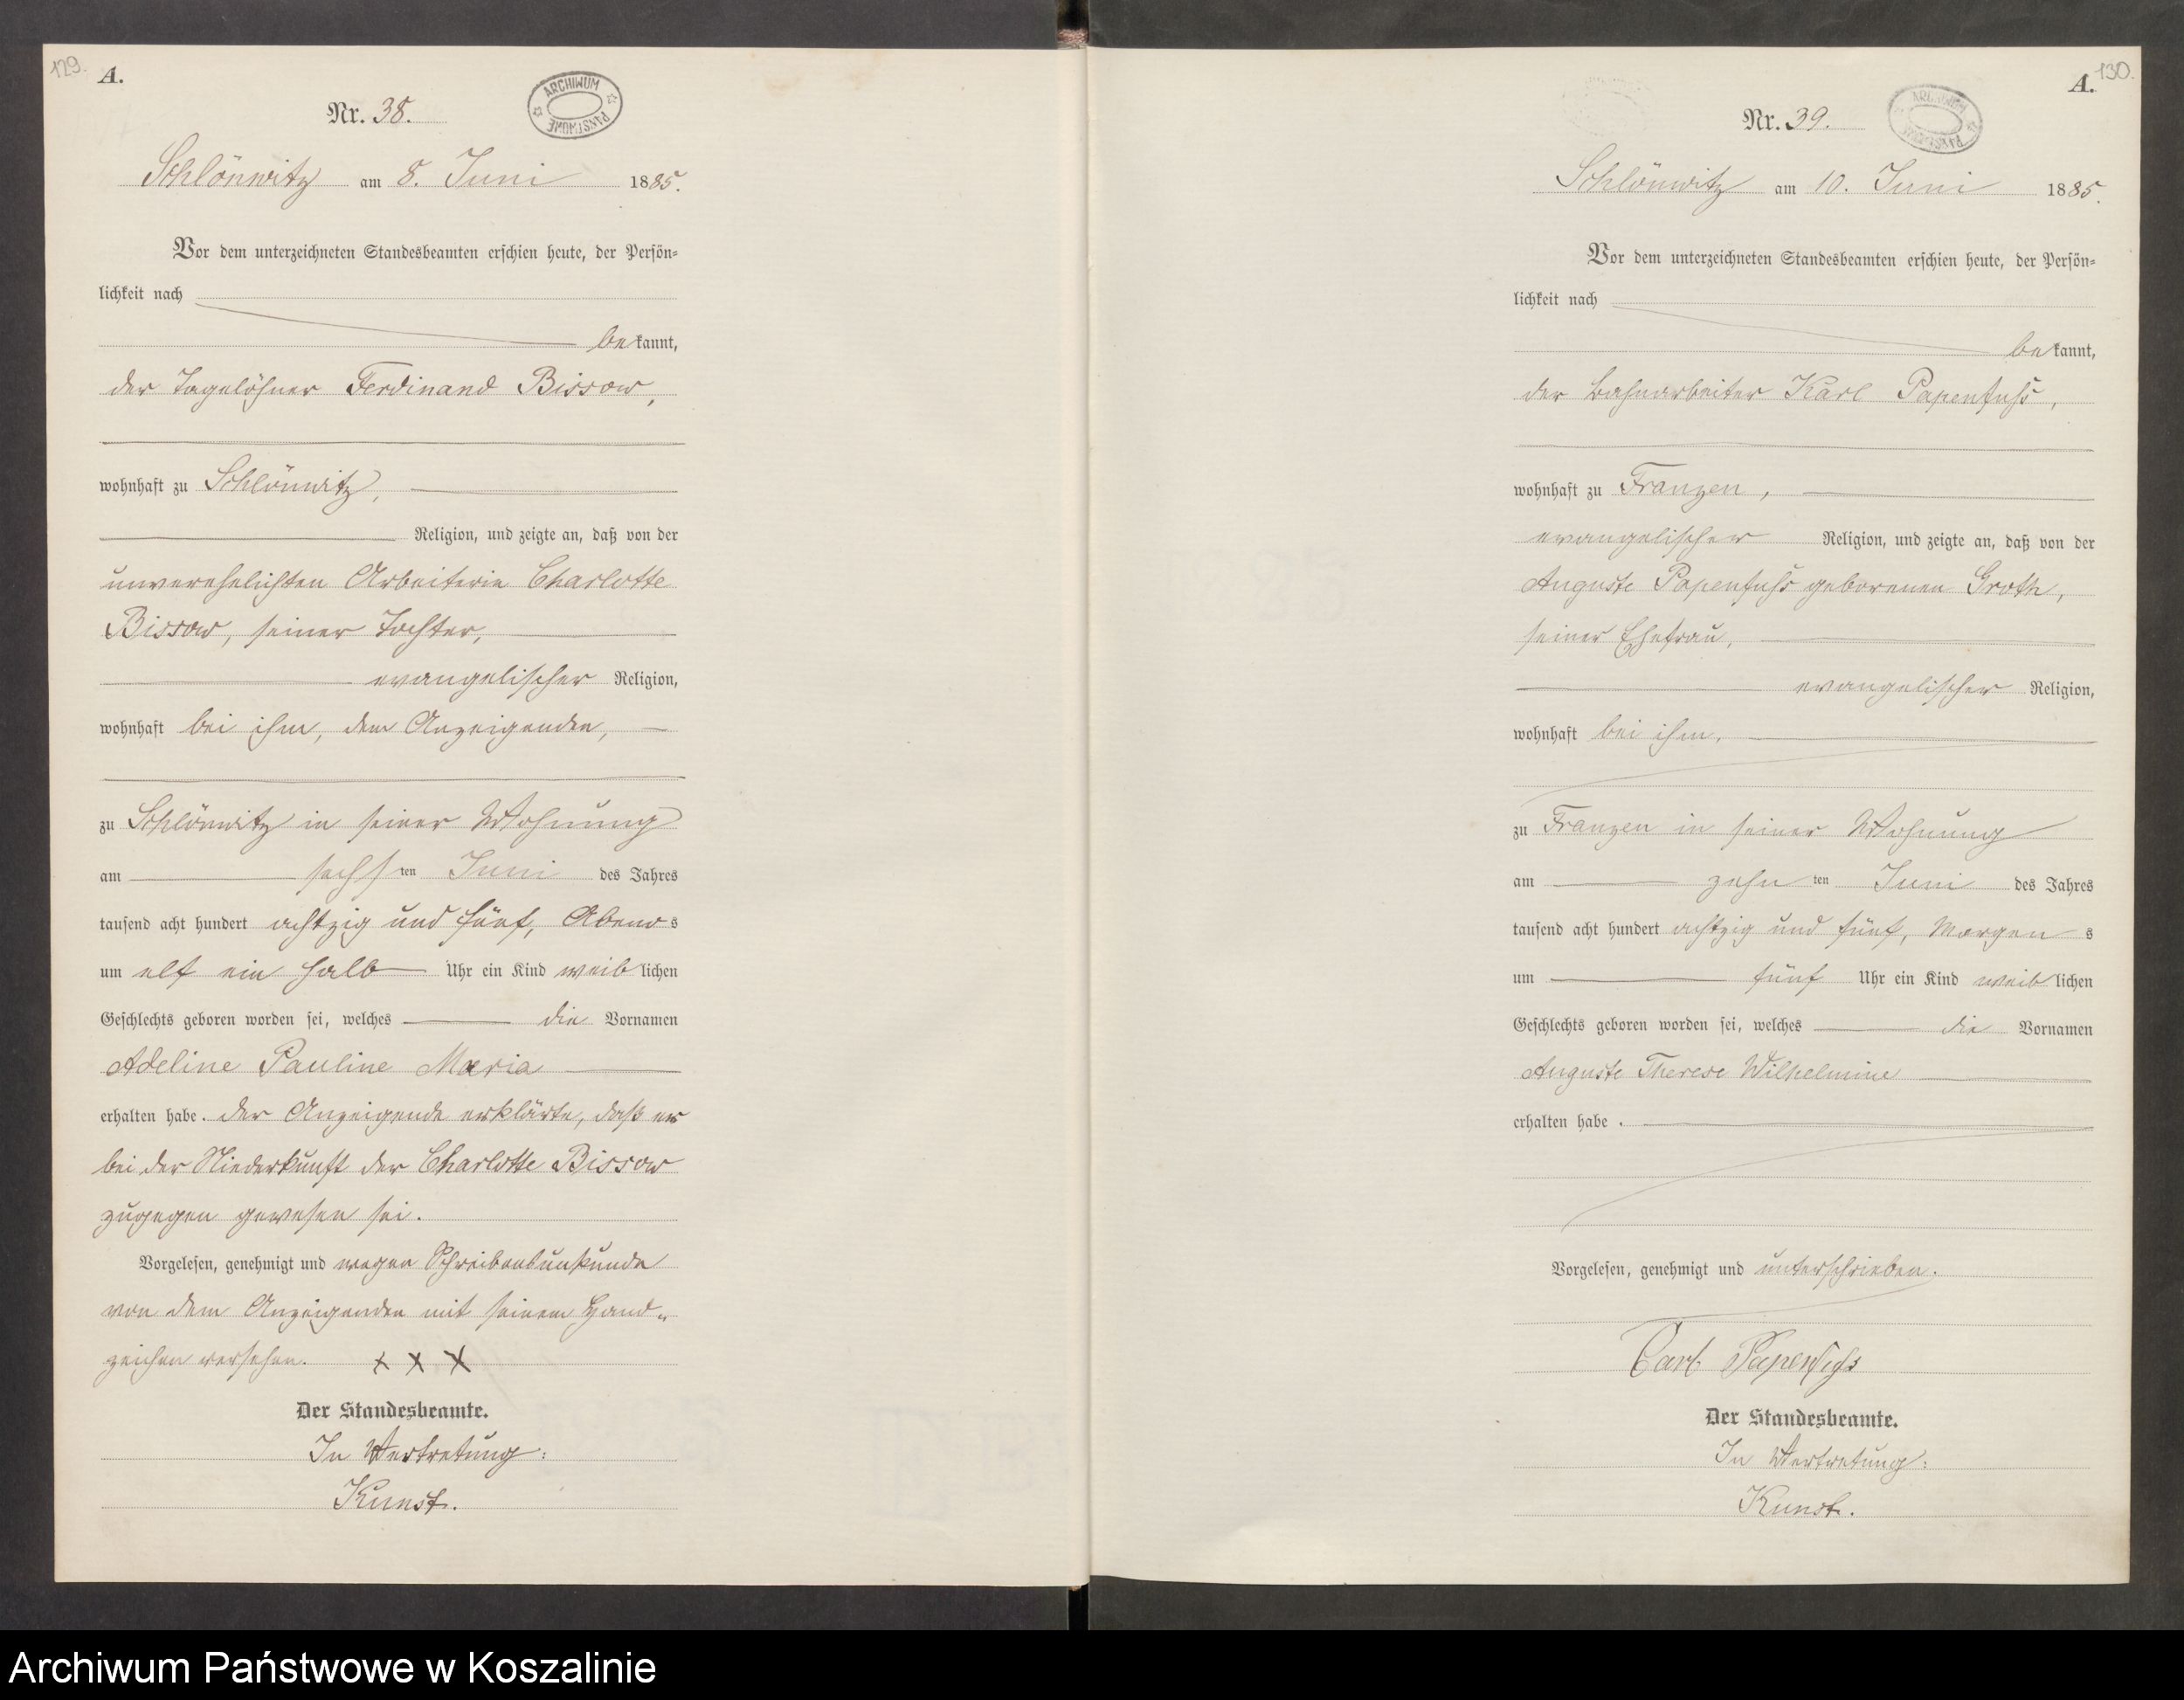 129.
A.
ARCHIWUM PAŃSTWOWE
Nr. 38.
Schlönwitz am 8. Juni 1885.
Vor dem unterzeichneten Standesbeamten erschien heute, der Persön-
lichkeit nach
bekannt,
der Tagelöhner Ferdinand Bissow,
wohnhaft zu Schlönwitz,
Religion, und zeigte an, daß von der
unverehelichten Arbeiterin Charlotte
Bissow, seiner Tochter,
evangelischer Religion,
wohnhaft bei ihm, dem Anzeigenden,
zu Schlönwitz in seiner Wohnung
am sechsten Juni des Jahres
tausend acht hundert achtzig und fünf, Abends
um elf ein halb Uhr ein Kind weiblichen
Geschlechts geboren worden sei, welches die Vornamen
Adeline Pauline Maria
erhalten habe. Der Anzeigende erklärte, daß er
bei der Niederkunft der Charlotte Bissow
zugegen gewesen sei.
Vorgelesen, genehmigt und wegen Schreibensunkunde
von dem Anzeigenden mit seinem Hand-
zeichen versehen. x x x
Der Standesbeamte.
In Vertretung:
Kunst.
130.
A.
ARCHIWUM PAŃSTWOWE
Nr. 39.
Schlönwitz am 10. Juni 1885.
Vor dem unterzeichneten Standesbeamten erschien heute, der Persön-
lichkeit nach
bekannt,
der Bahnarbeiter Karl Papenfuß,
wohnhaft zu Franzen,
evangelischer Religion, und zeigte an, daß von der
Auguste Papenfuß geborenen Groth,
seiner Ehefrau,
evangelischer Religion,
wohnhaft bei ihm,
zu Franzen in seiner Wohnung
am zehnten Juni des Jahres
tausend acht hundert achtzig und fünf, Morgens
um fünf Uhr ein Kind weiblichen
Geschlechts geboren worden sei, welches die Vornamen
Auguste Therese Wilhelmine
erhalten habe.
Vorgelesen, genehmigt und unterschrieben.
Carl Papenfuhs
Der Standesbeamte.
In Vertretung:
Kunst.
Archiwum Państwowe w Koszalinie